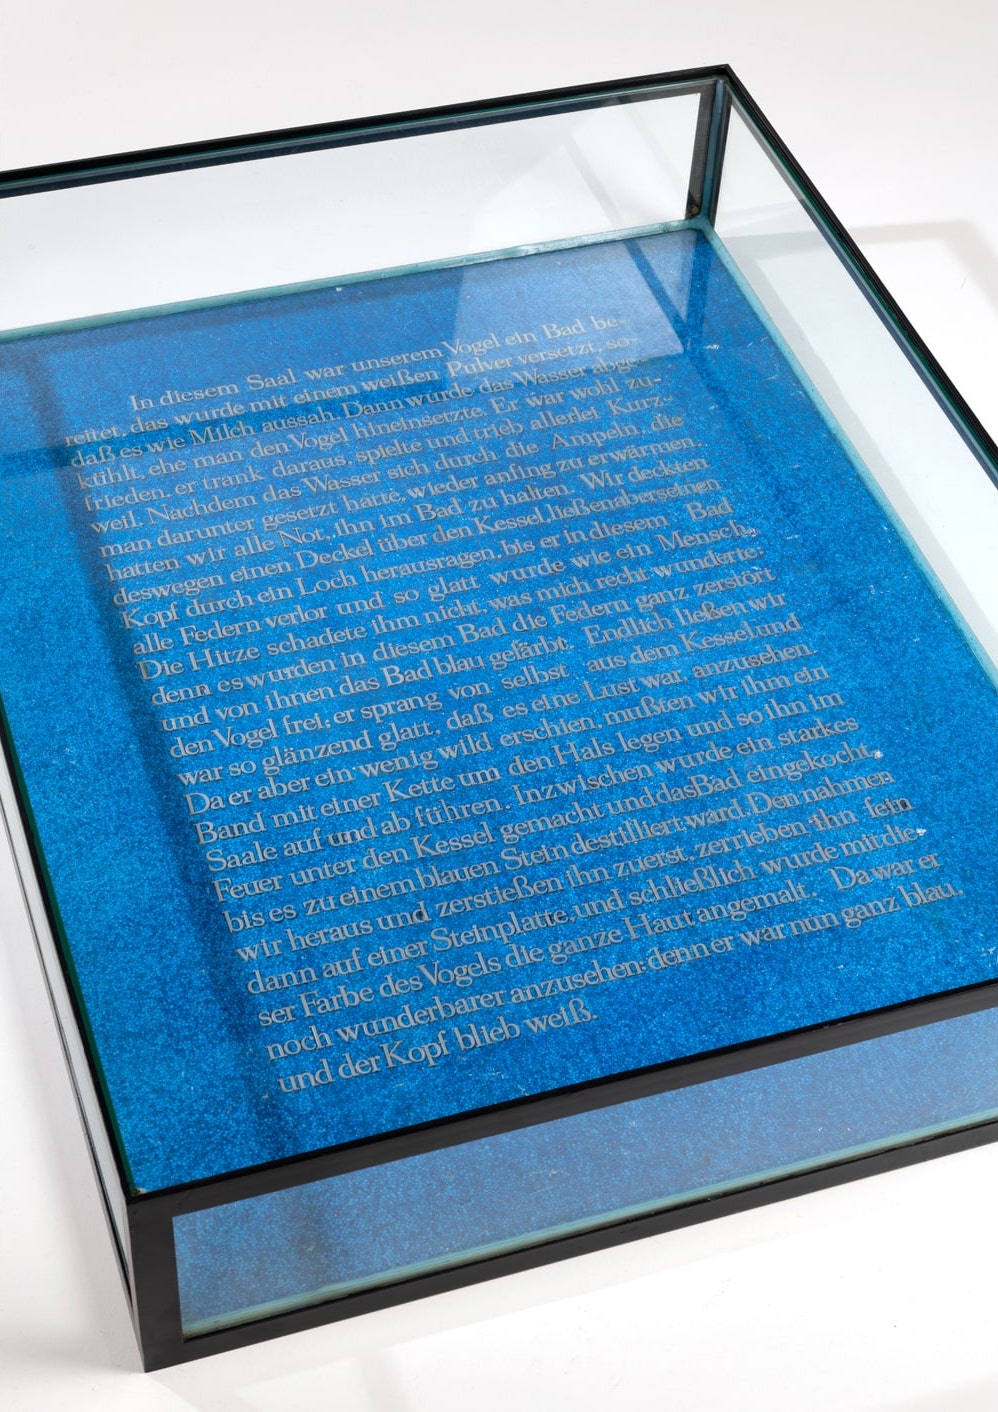 In diesem Saal war unserem Vogel ein Bad be-
reitet, das wurde mit einem weißen Pulver versetzt, so-
daß es wie Milch aussah. Dann wurde das Wasser abge-
kühlt, ehe man den Vogel hineinsetzte. Er war wohl zu-
frieden, er trank daraus, spielte und trieb allerlei Kurz-
weil. Nachdem das Wasser sich durch die Ampeln, die
man darunter gesetzt hatte, wieder anfing zu erwärmen,
hatten wir alle Not, ihn im Bad zu halten. Wir deckten
deswegen einen Deckel über den Kessel, ließen aber seinen
Kopf durch ein Loch herausragen, bis er in diesem Bad
alle Federn verlor und so glatt wurde wie ein Mensch.
Die Hitze schadete ihm nicht, was mich recht wunderte:
denn es wurden in diesem Bad die Federn ganz zerstört
und von ihnen das Bad blau gefärbt. Endlich ließen wir
den Vogel frei; er sprang von selbst aus dem Kessel und
war so glänzend glatt, daß es eine Lust war, anzusehen.
Da er aber ein wenig wild erschien, mußten wir ihm ein
Band mit einer Kette um den Hals legen und so ihn im
Saale auf und ab führen. Inzwischen wurde ein starkes
Feuer unter den Kessel gemacht und das Bad eingekocht,
bis es zu einem blauen Stein destilliert ward. Den nahmen
wir heraus und zerstießen ihn zuerst, zerrieben ihn fein
dann auf einer Steinplatte, und schließlich wurde mit die-
ser Farbe des Vogels die ganze Haut angemalt. Da war er
noch wunderbarer anzusehen: denn er war nun ganz blau,
und der Kopf blieb weiß.